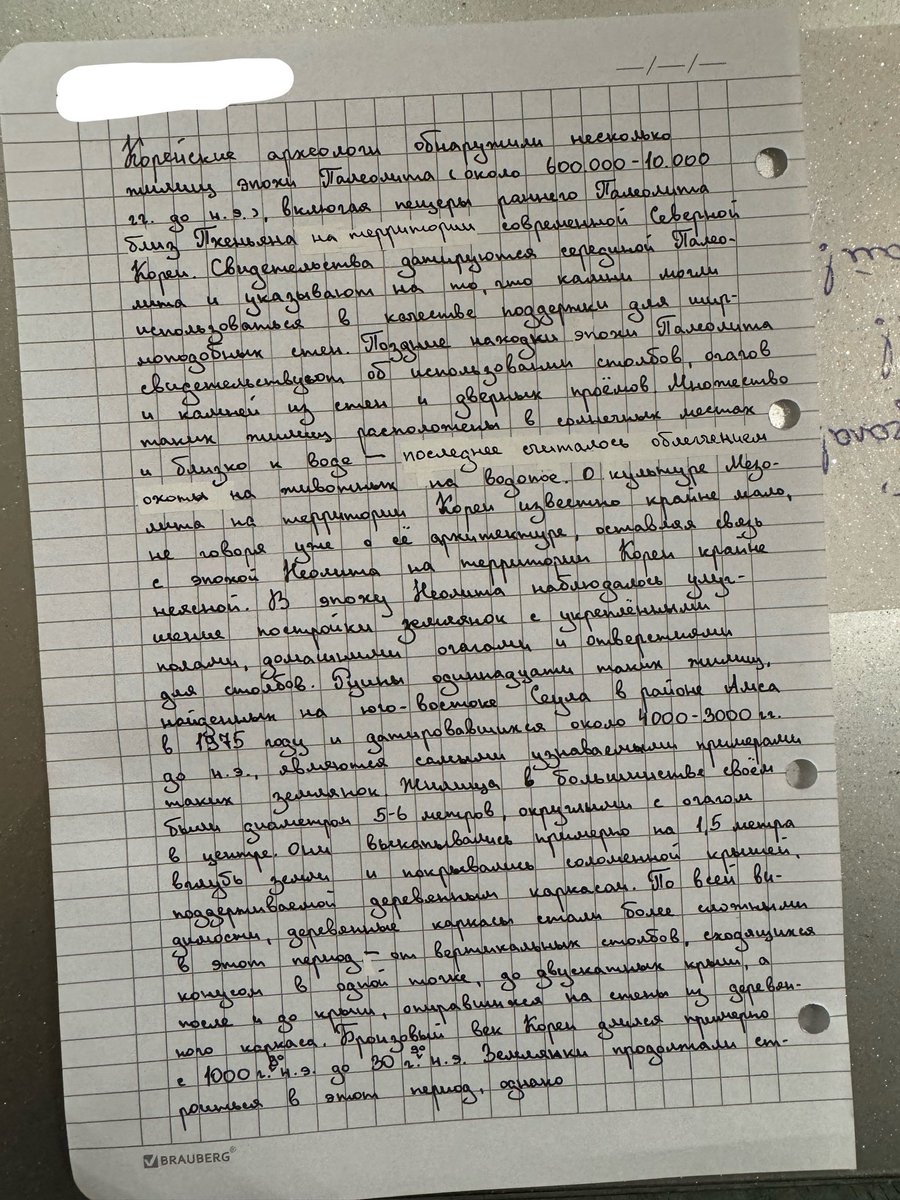 —/—/—
Корейские археологи обнаружили несколько
жилищ эпохи Палеолита (около 600.000-10.000
гг. до н.э.), включая пещеры раннего Палеолита
близ Пхеньяна на территории современной Северной
Кореи. Свидетельства датируются серединой Палео-
лита и указывают на то, что камни могли
использоваться в качестве поддержки для шир-
моподобных стен. Поздние находки эпохи Палеолита
свидетельствуют об использовании столбов, очагов
и камней из стен и дверных проёмов. Множество
таких жилищ расположены в солнечных местах
и близко к воде — последнее считалось облегчением
охоты на животных на водопое. О культуре Мезо-
лита на территории Кореи известно крайне мало,
не говоря уже о её архитектуре, оставляя связь
с эпохой Неолита на территории Кореи крайне
неясной. В эпоху Неолита наблюдалось улуч-
шение постройки землянок с укреплёнными
полами, домашними очагами и отверстиями
для столбов. Руины одиннадцати таких жилищ,
найденных на юго-востоке Сеула в районе Амса
в 1975 году и датировавшихся около 4000-3000 гг.
до н.э., являются самыми узнаваемыми примерами
таких землянок. Жилища в большинстве своём
были диаметром 5-6 метров, округлыми с очагом
в центре. Они выкапывались примерно на 1,5 метра
вглубь земли и покрывались соломенной крышей,
поддерживаемой деревянным каркасом. По всей ви-
димости, деревянные каркасы стали более сложными
в этот период — от вертикальных столбов, сходящихся
конусом в одной точке, до двускатных крыш, а
после и до крыш, опиравшихся на стены из деревян-
ного каркаса. Бронзовый век Кореи длился примерно
с 1000 г. до н.э. до 30 г. до н.э. Землянки продолжали ст-
роиться в этот период, однако
BRAUBERG®